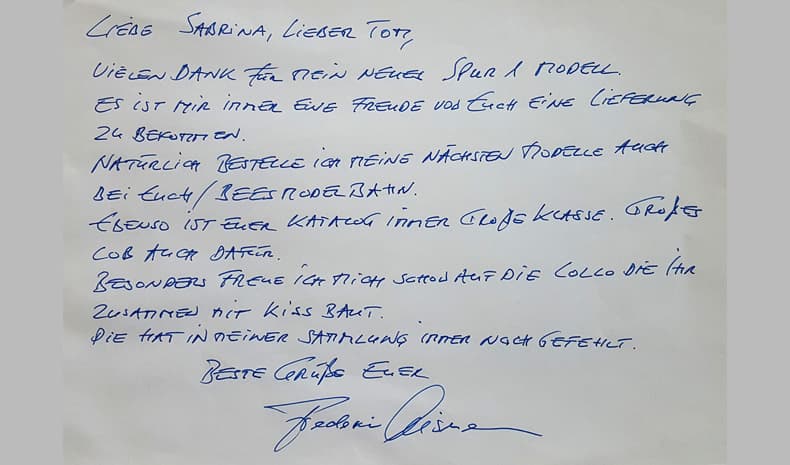 LIEBE SABRINA, LIEBER TOM,
VIELEN DANK FÜR MEIN NEUES SPUR 1 MODELL.
ES IST MIR IMMER EINE FREUDE VON EUCH EINE LIEFERUNG
ZU BEKOMMEN.
NATÜRLICH BESTELLE ICH MEINE NÄCHSTEN MODELLE AUCH
BEI EUCH / BEESMODELBAHN.
EBENSO IST EUER KATALOG IMMER GROßE KLASSE. GROßES
LOB AUCH DAFÜR.
BESONDERS FREUE ICH MICH SCHON AUF DIE LOLLO DIE IHR
ZUSAMMEN MIT KISS BAUT.
DIE HAT IN MEINER SAMMLUNG IMMER NOCH GEFEHLT.
BESTE GRÜßE EUER